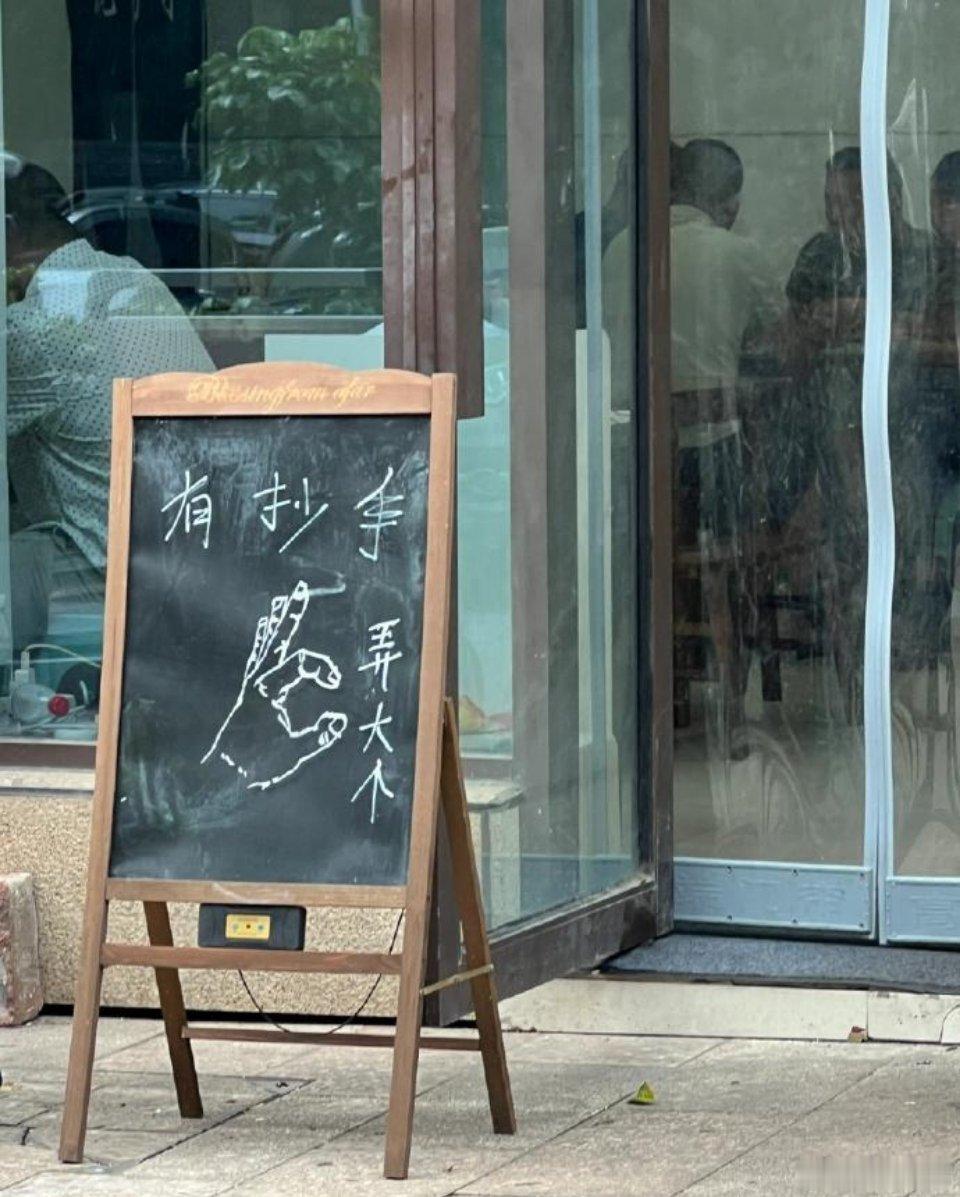 Blessing from afar
有抄手
弄大个